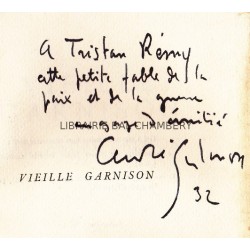 A Tristan Rémy
cette petite fable de la
paix et de la guerre
amitié
LIBRAIRIE BAL CHAMBERY
André Salmon
VIEILLE GARNISON
32